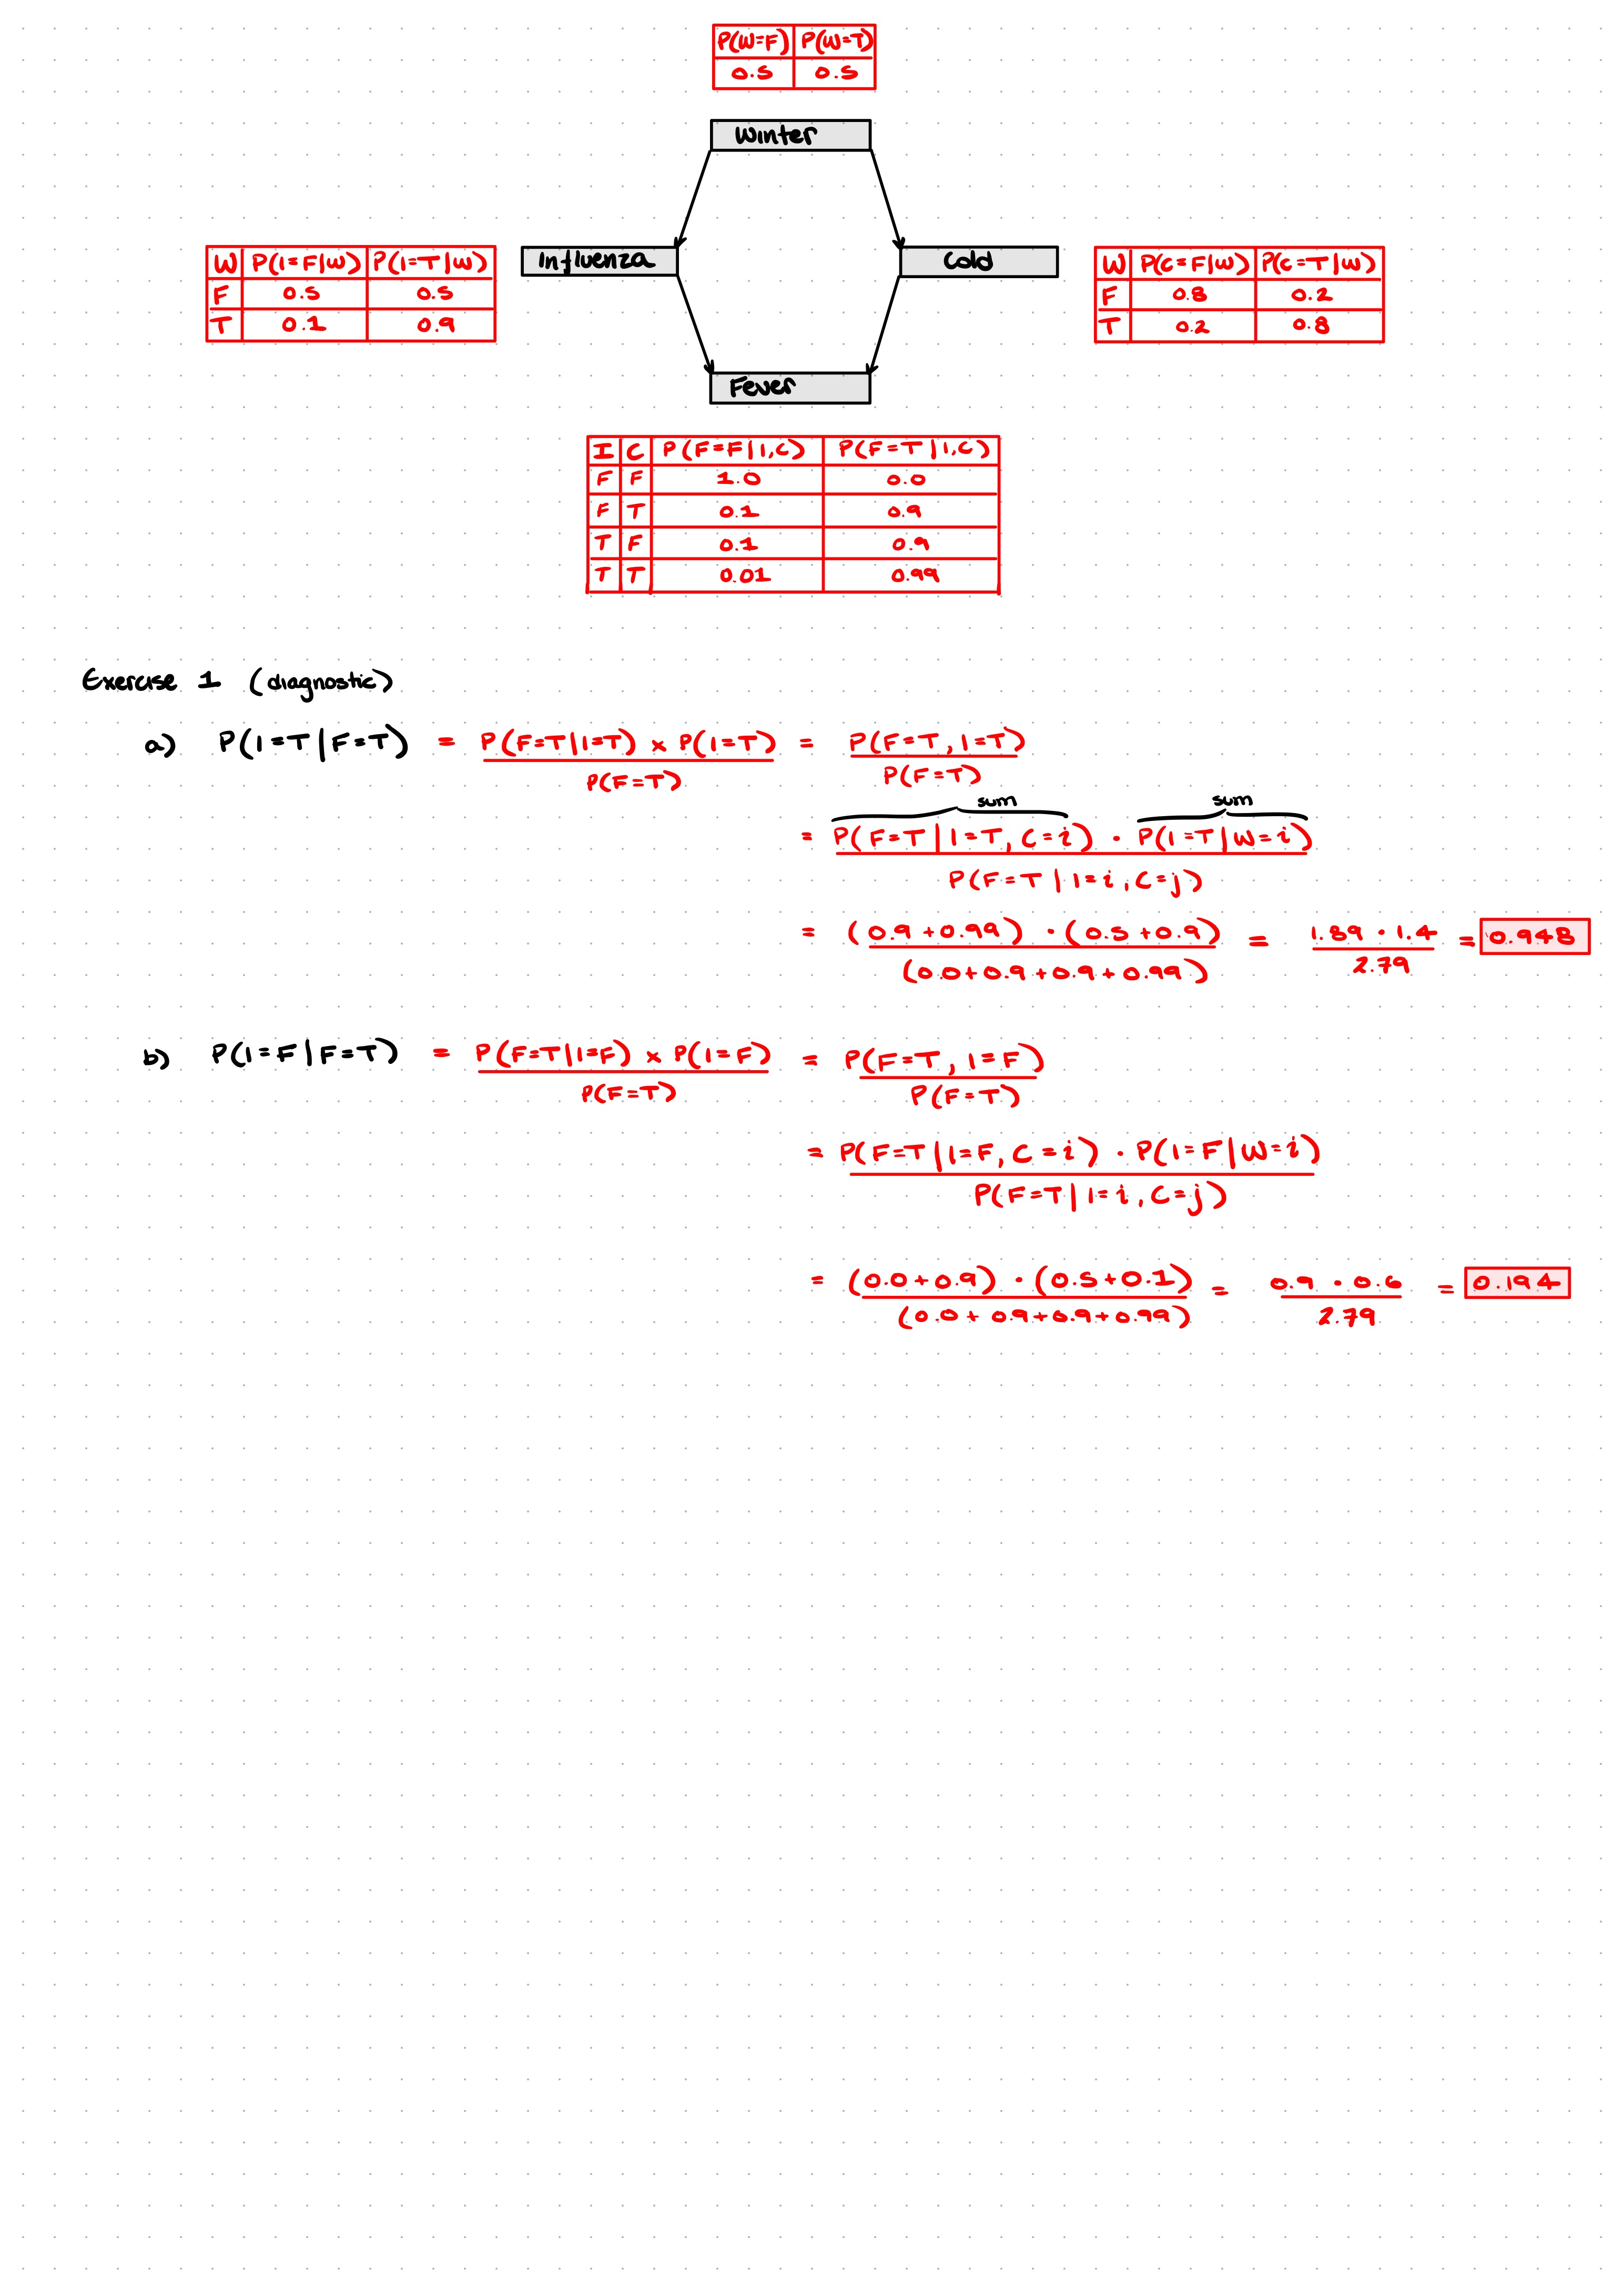 P(W=F) P(W=T)
0.5 0.5
Winter
Influenza
Cold
W P(I=F|W) P(I=T|W)
F 0.5 0.5
T 0.1 0.9
W P(C=F|W) P(C=T|W)
F 0.8 0.2
T 0.2 0.8
Fever
I C P(F=F|I,C) P(F=T|I,C)
F F 1.0 0.0
F T 0.1 0.9
T F 0.1 0.9
T T 0.01 0.99
Exercise 1 (diagnostic)
a) P(I=T|F=T) = P(F=T|I=T) x P(I=T) = P(F=T, I=T)
P(F=T) P(F=T)
sum sum
= P(F=T|I=T, C=i) · P(I=T|W=i)
P(F=T|I=i, C=j)
= (0.9+0.99) · (0.5+0.9) = 1.89 · 1.4 = 0.948
(0.0+0.9+0.9+0.99) 2.79
b) P(I=F|F=T) = P(F=T|I=F) x P(I=F) = P(F=T, I=F)
P(F=T) P(F=T)
= P(F=T|I=F, C=i) · P(I=F|W=i)
P(F=T|I=i, C=j)
= (0.0+0.9) · (0.5+0.1) = 0.9 · 0.6 = 0.194
(0.0+0.9+0.9+0.99) 2.79